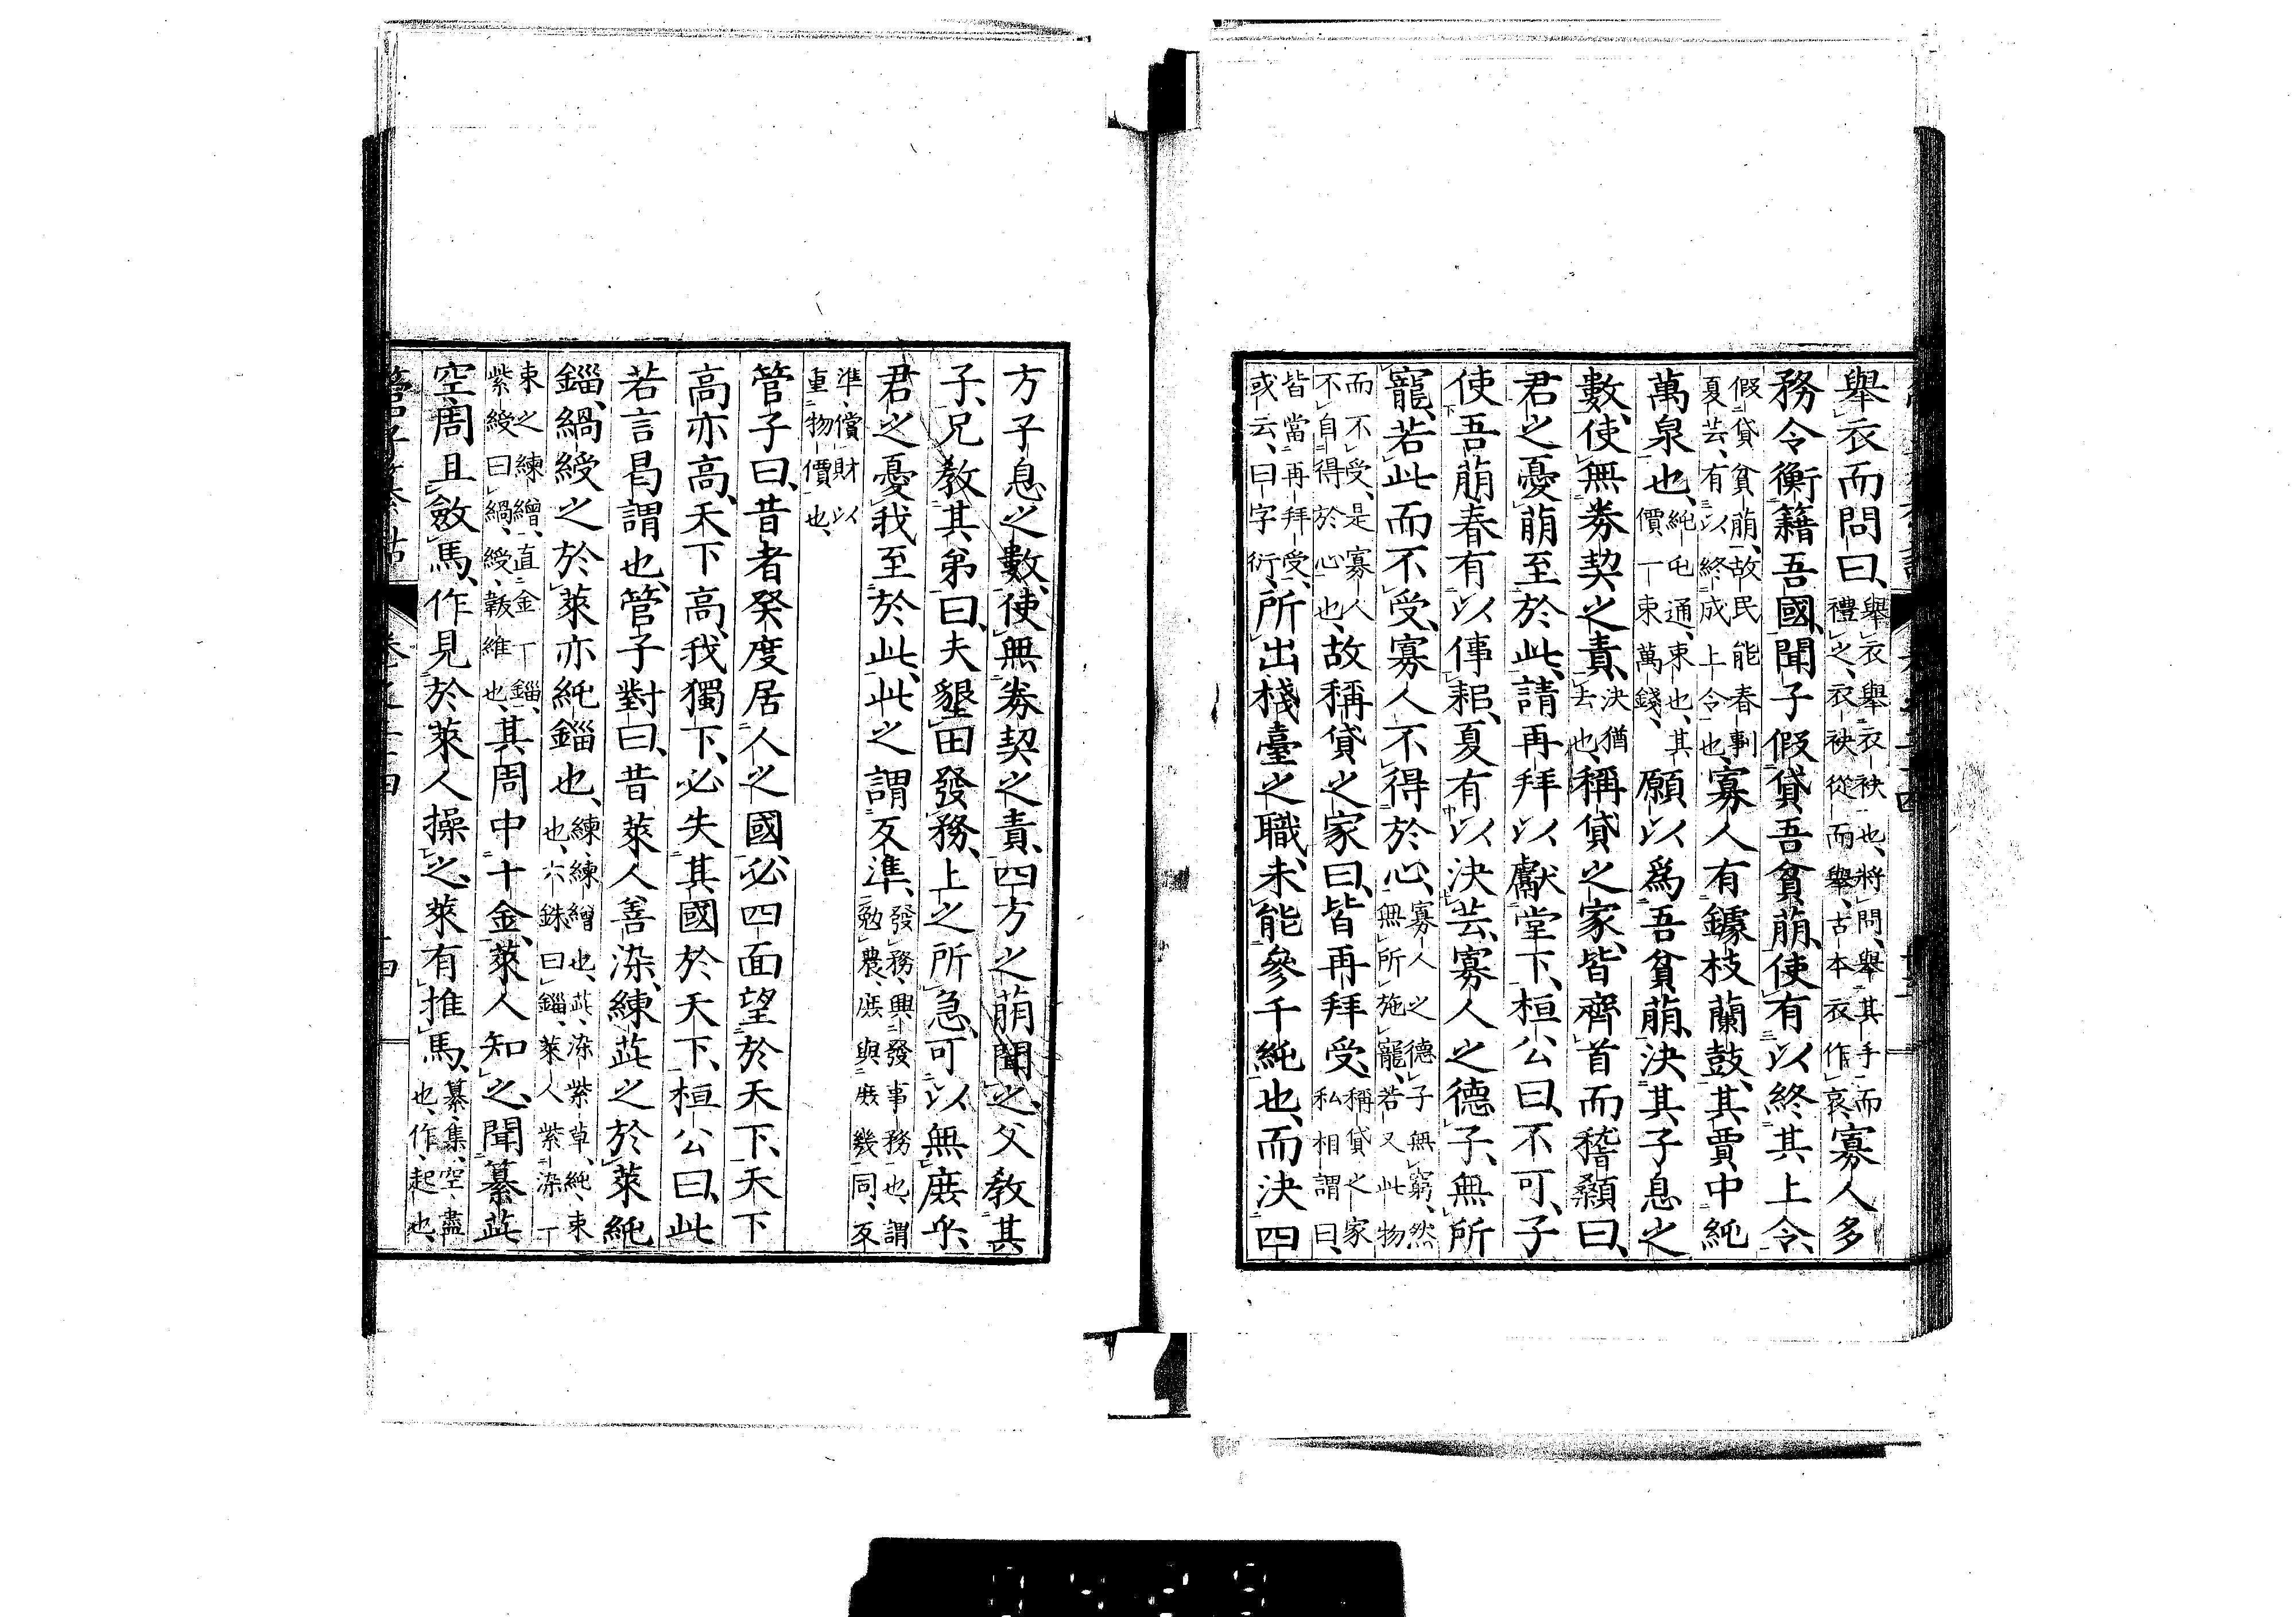 舉衣而問曰、舉衣舉衣袂也、將問、舉其手而禮之、衣袂從而舉、古本衣作哀、寡人多
務令衡籍吾國、聞子假貸吾貧萌、使有以終其上令、
假貸貧萌、故民能春剚夏芸、有以終成上令也、寡人有鐻枝蘭鼓、其賈中純
萬泉也、純屯通、束也、其價一束萬錢、願以爲吾貧萌、決其子息之
數、使無劵契之責、決猶去也、稱貸之家、皆齊首而稽顙曰、
君之憂萌至於此、請再拜以獻堂下、桓公曰、不可、子
使吾萌春有以倳耜、夏有以決芸、寡人之德子、無所
寵、若此而不受、寡人不得於心、寡人之德子無窮、然無所施寵、若又此物
而不受、是寡人不自得於心也、故稱貸之家曰、皆再拜受、稱貸之家私相謂曰、
皆當再拜受、或云、曰字衍、所出棧臺之職、未能參千純也、而決四
方子息之數、使無劵契之責、四方之萌聞之、父教其
子、兄教其弟曰、夫墾田發務、上之所急、可以無庶乎、
君之憂我至於此、此之謂反準、發務、興發事務也、謂勉農、庶與庶幾同、反
準、償財以重物價也、
管子曰、昔者癸度居人之國、必四面望於天下、天下
高亦高、天下高、我獨下、必失其國於天下、桓公曰、此
若言曷謂也、管子對曰、昔萊人善染、練茈之於萊純
錙、緺綬之於萊亦純錙也、練、練繒也、茈、染紫草、純、束也、六銖曰錙、萊人紫染一
束之練繒、直金一錙、紫綬曰緺、綬、韍維也、其周中十金、萊人知之、聞纂茈
空、周且斂馬、作見於萊人操之、萊有推馬、纂、集、空、盡也、作、起也、
管子纂詁 卷之二十四